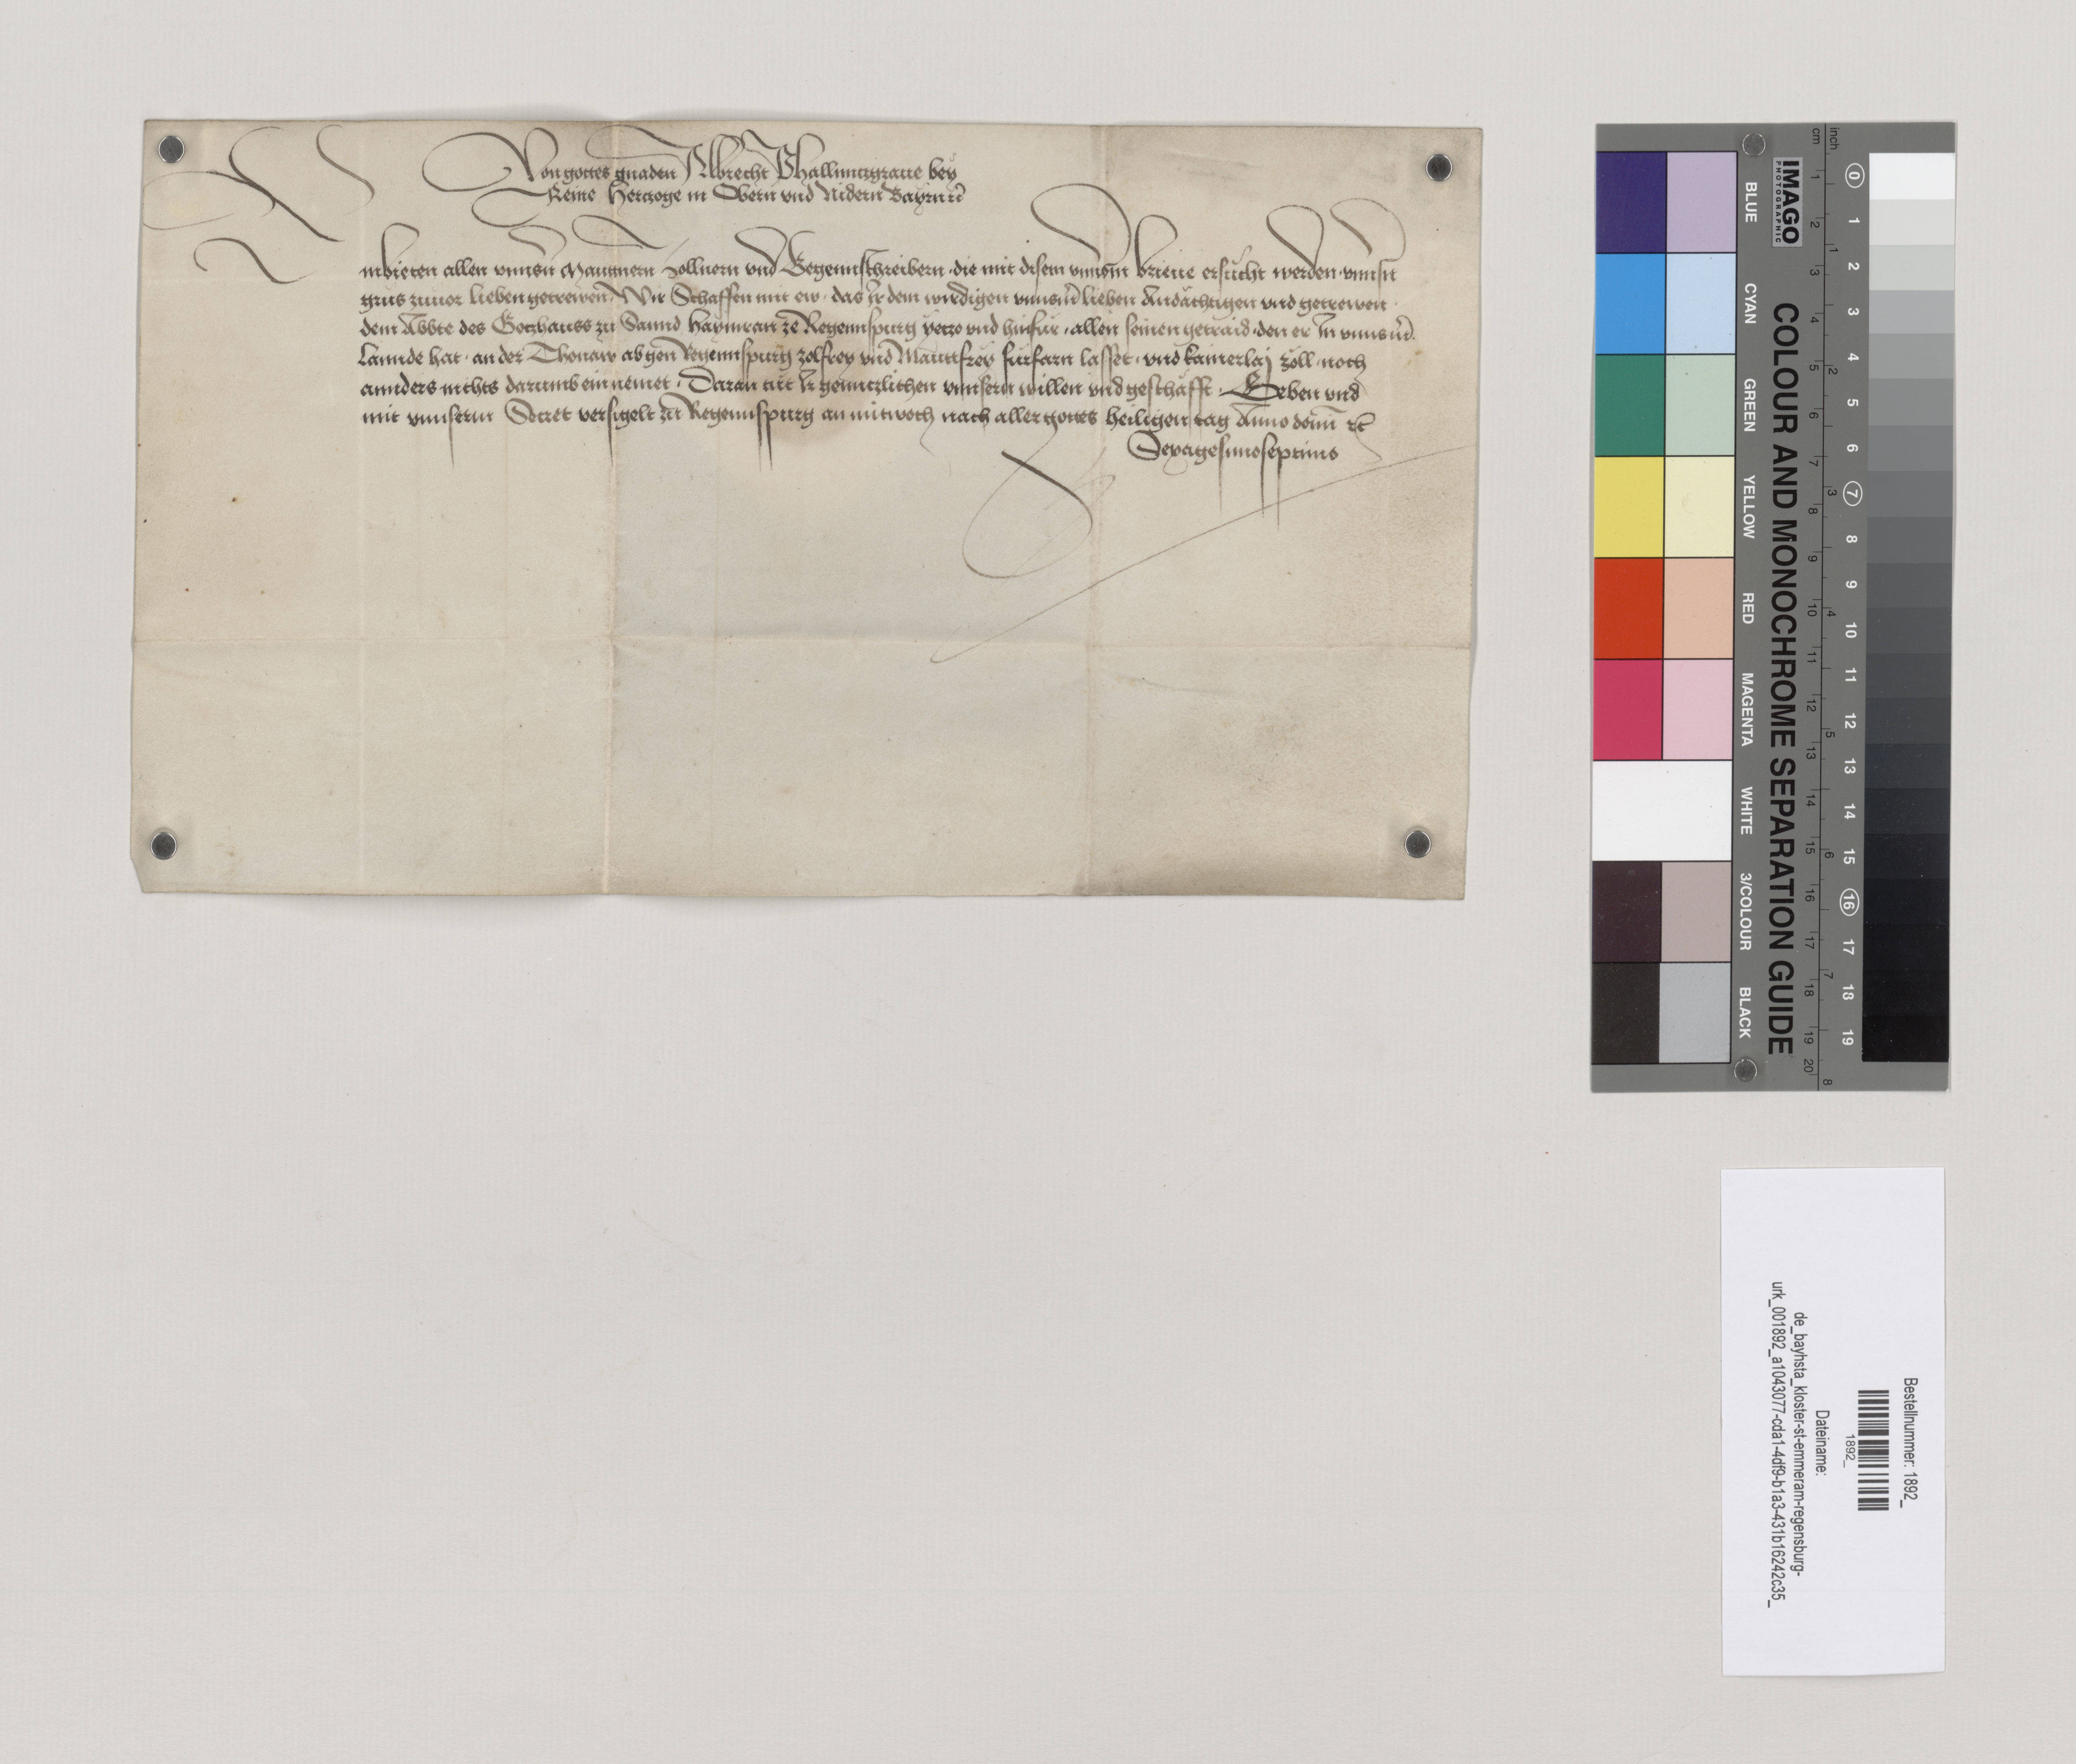 Von gottes gnaden Albrecht Phallnntzgraue bey
Reine Hertzoge in Obern vnd Nidern Bayrn rc
Enbieten allen vnnsn Mauttnern Zollnern vnd Gegennschreibern · die mit disem vnnsm brieue ersucht werden · vnnsn
grus zuuor lieben getrewen Wir Schaffen mit ew · das Ir dem wirdigen vnnsm lieben Andächtigen vnd getrewen ·
dem Abbte des Gotzhauss zu Sannd Haymran ze Regennspurg yetzo vnd hinfür · allen seinen getraid · den er In vnnsm
Lannde hat · an der Thonaw ab gen Regennspurg zolfrey vnd Mauttfrey fürfarn lasset · vnd kainerlaj zoll · noch
annders nichts darumb ein nemet · Daran tut Ir genntzlichen vnnsern willen vnd geschäfft · Geben vnd
mit vnnserm Secret versigelt zu Regennspurg an mitwoch nach aller gottes heiligen tag Anno domini rc
Sexagesimoseptimo
IMAGO
PHOTOGRAPHIC
COLOUR AND MONOCHROME SEPARATION GUIDE
inch
cm
1 2 3 4 5 6 7 8
1 2 3 4 5 6 7 8 9 10 11 12 13 14 15 16 17 18 19 20
0 1 2 3 4 5 6 7 8 9 10 11 12 13 14 15 16 17 18 19
BLUE
CYAN
GREEN
YELLOW
RED
MAGENTA
WHITE
3/COLOUR
BLACK
Bestellnummer: 1892_
1892_
Dateiname:
de_bayhsta_kloster-st-emmeram-regensburg-
urk_001892_a1043077-cda1-4df9-b1a3-431b16242c35_